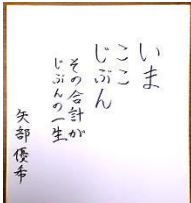 いま
ここ
じぶん
その合計が
じぶんの一生
矢部優希